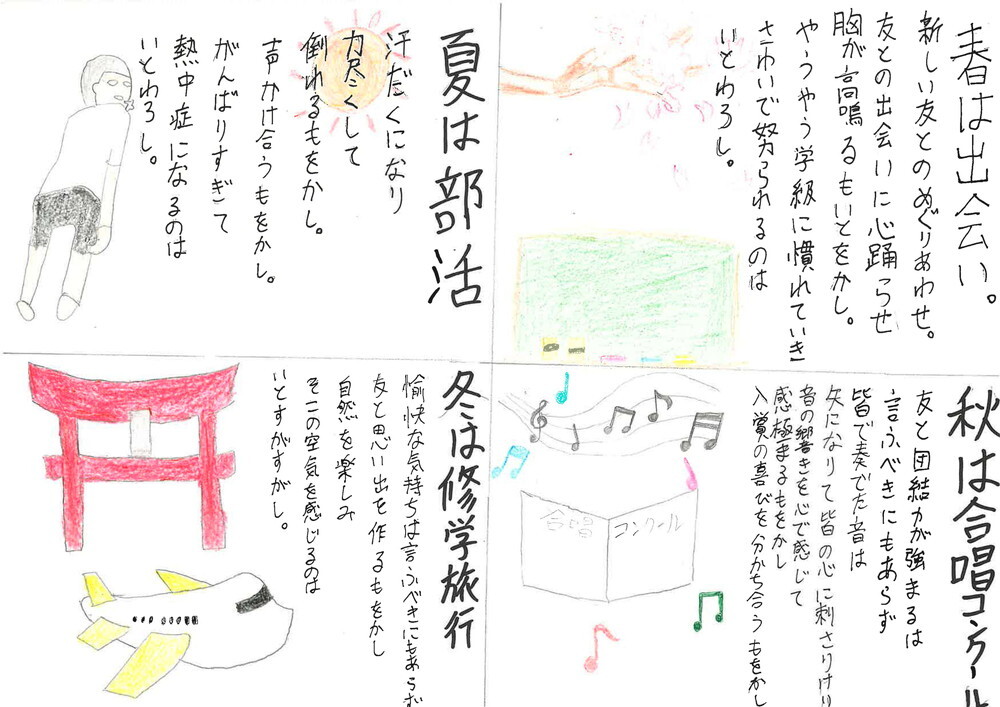 春は出会い。
新しい友とのめぐりあわせ。
友との出会いに心踊らせ
胸が高鳴るもいとをかし。
やうやう学級に慣れていき
さわいで努られるのは
いとわろし。
夏は部活
汗だくになり
力尽くして
倒れるもをかし。
声かけ合うもをかし。
がんばりすぎて
熱中症になるのは
いとわろし。
秋は合唱コンクール
友と団結力が強まるは
言ふべきにもあらず
皆で奏でた音は
矢になりて皆の心に刺さりけり
音の響きを心で感じて
感極まるもをかし
入賞の喜びを分かち合うもをかし
合唱コンクール
冬は修学旅行
愉快な気持ちは言ふべきにもあらず
友と思い出を作るもをかし
自然を楽しみ
そこの空気を感じるのは
いとすがすがし。